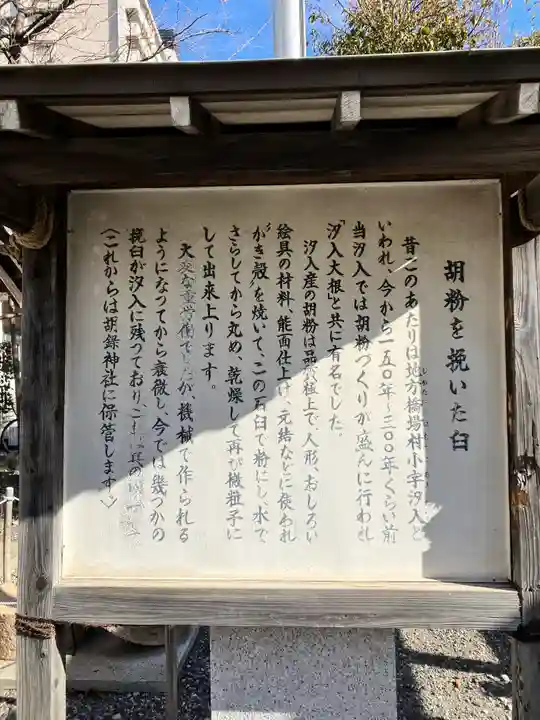 胡粉を挽いた臼
昔このあたりは地方橋場村小字汐入と
いわれ、今から一五〇年〜三〇〇年くらい前
当汐入では胡粉づくりが盛んに行われ
「汐入大根」と共に有名でした。
汐入産の胡粉は品質極上で、人形、おしろい
絵具の材料、能面仕上げ、元結などに使われ
"がき殻"を焼いて、この石臼で粉にし、水で
さらしてから丸め、乾燥して再び微粒子に
して出来上ります。
大変な重労働でしたが、機械で作られる
ようになってから衰微し、今では幾つかの
挽臼が汐入に残っており
(これからは胡録神社に保管します。)